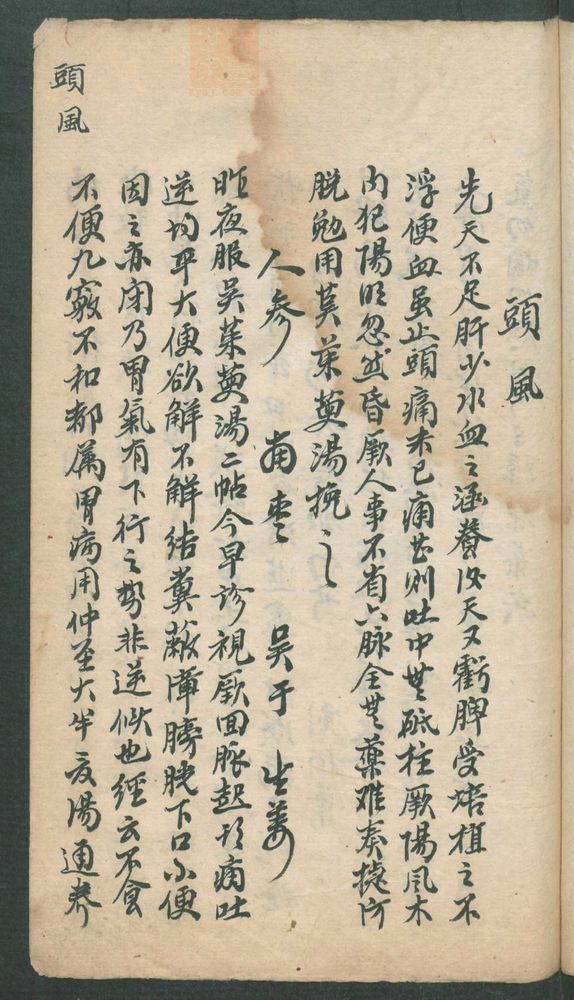 頭風
先天不足肝少水血之涵養後天又虧脾受焙植之不
浮便血虽止頭痛未已痛甚則吐中無砥柱厥陽風木
內犯陽明忽然昏厥人事不省六脉全無藥难奏捷何
脱勉用吴茱萸湯挽之
人參 南枣 吴于 生姜
昨夜服吴茱萸湯二帖今早診視厥回脉起頭痛吐
逆均平大便欲解不解結糞蔽障膀胱下口小便
因之亦闭乃胃氣有下行之势非逆候也經云不食
不便九竅不和都属胃病用仲圣大半夏湯通养
頭風